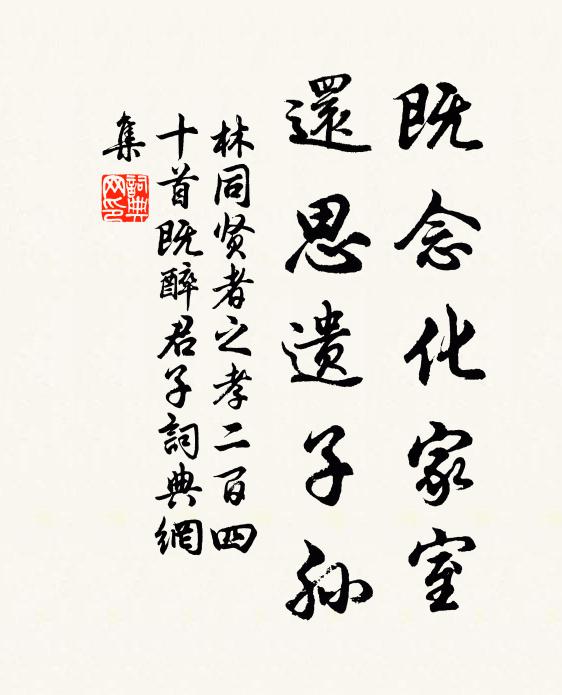 既念化家室
還思遺子孙
林同贤者之孝二百四
十首既醉君子詞典網
集
詞典网印